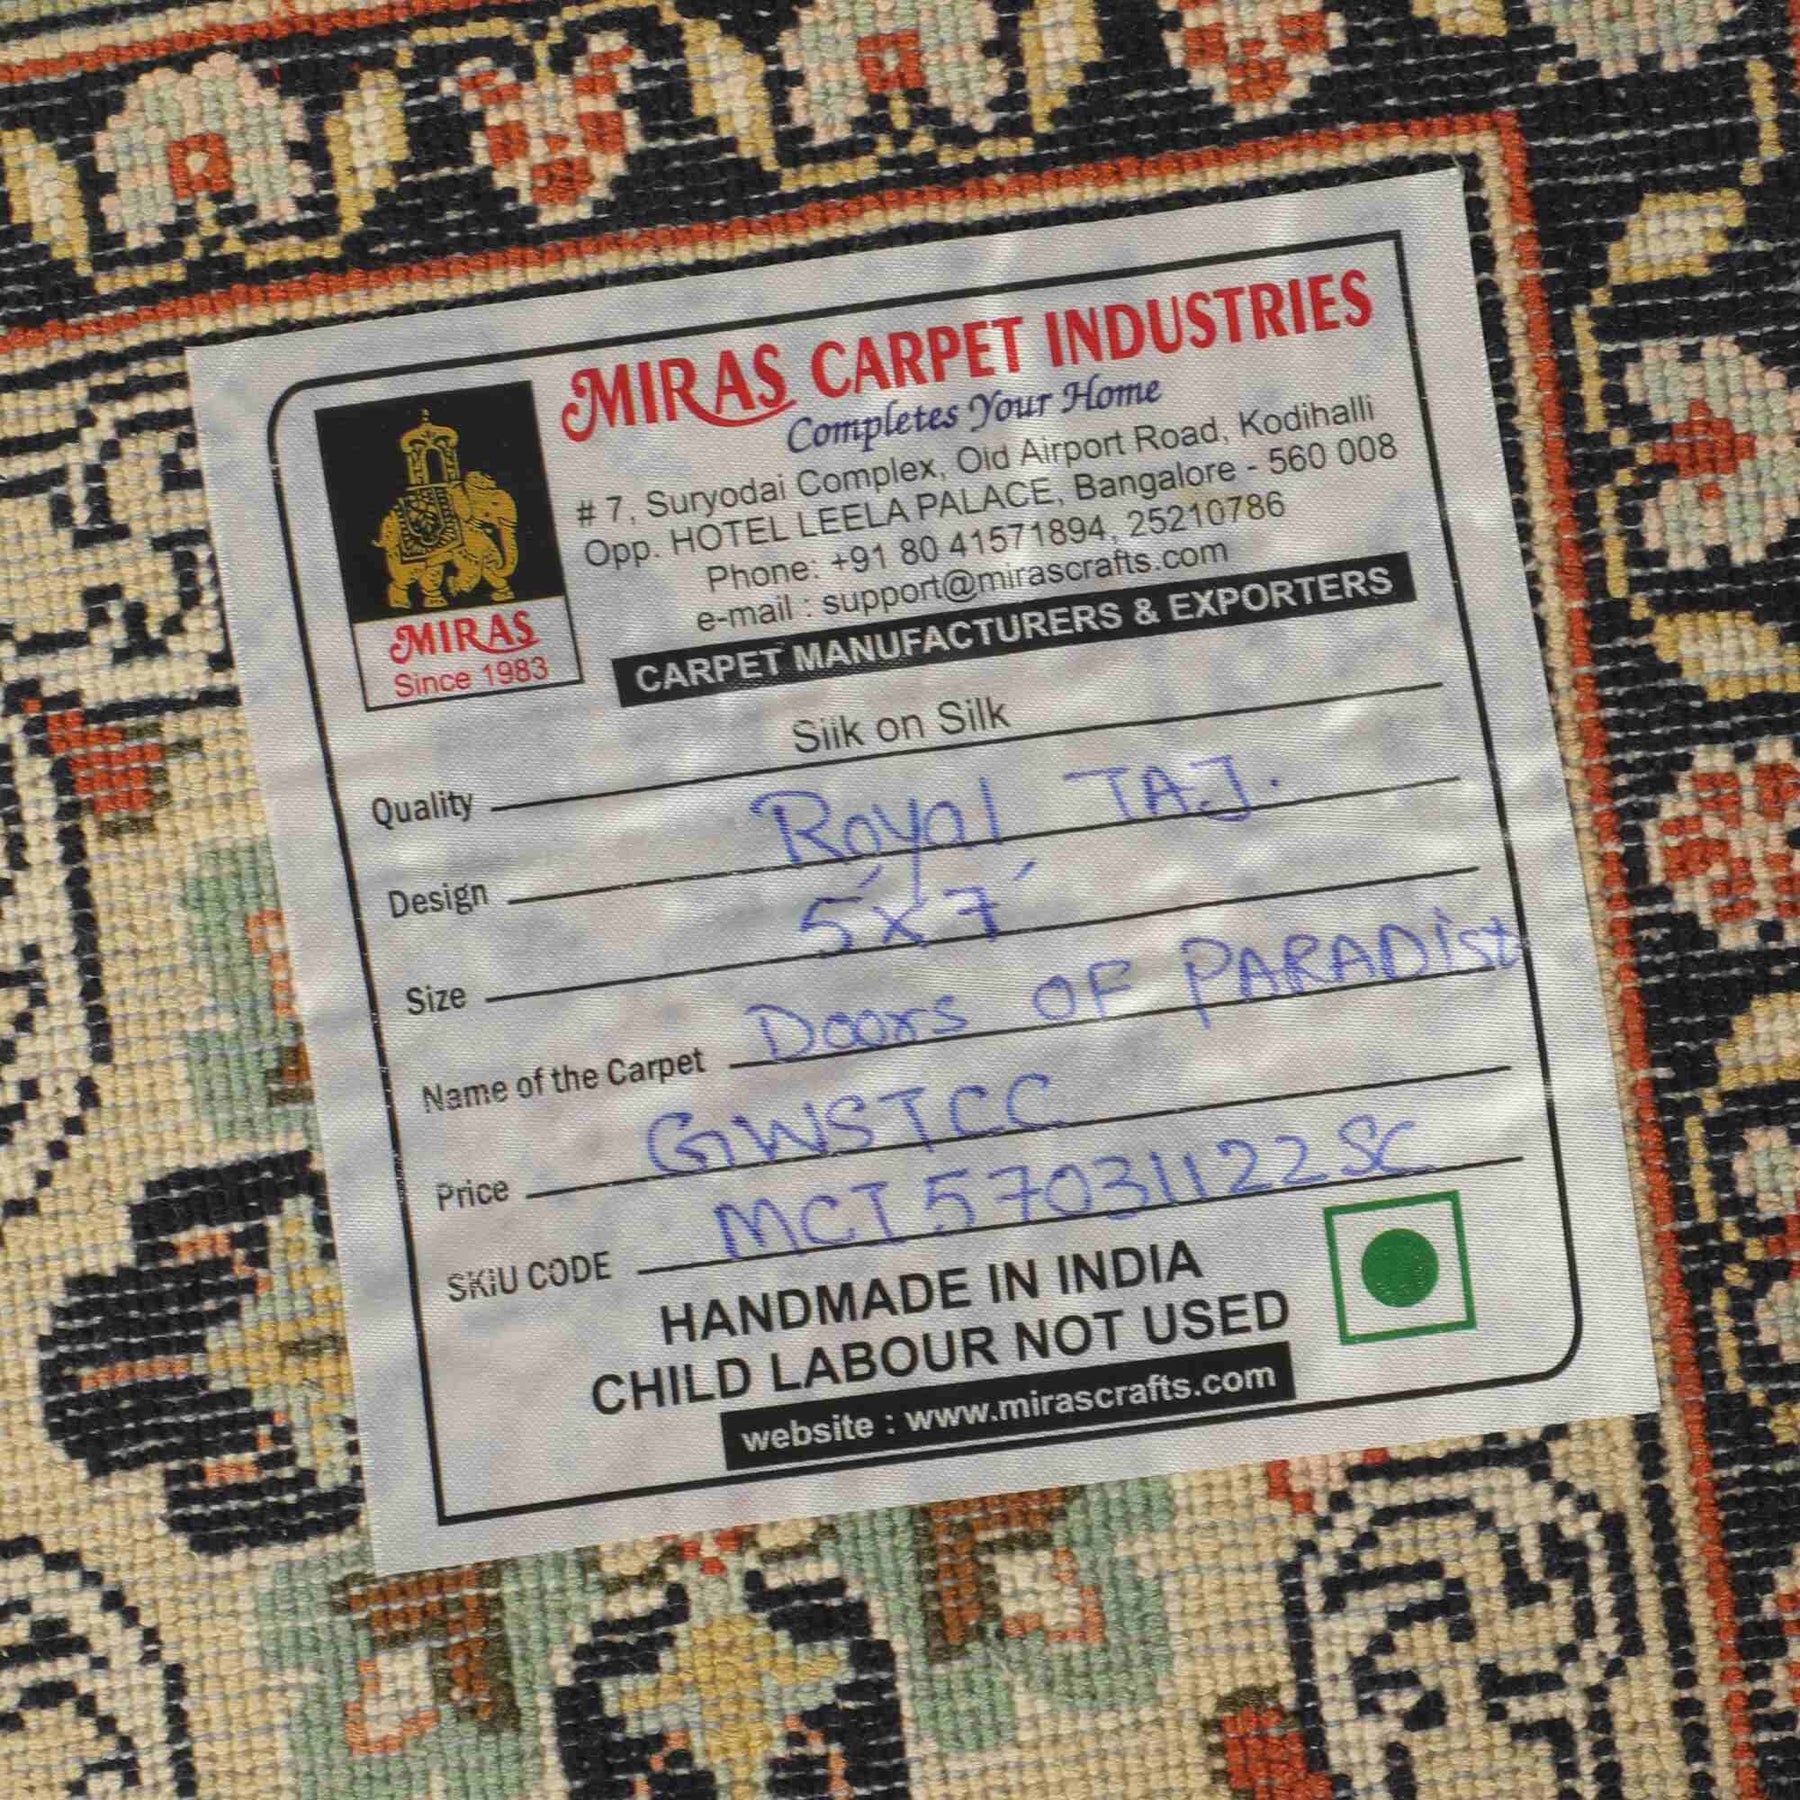 MIRAS CARPET INDUSTRIES
Completes Your Home
# 7, Suryodai Complex, Old Airport Road, Kodihalli
Opp. HOTEL LEELA PALACE, Bangalore - 560 008
Phone: +91 80 41571894, 25210786
e-mail : support@mirascrafts.com
CARPET MANUFACTURERS & EXPORTERS
MIRAS
Since 1983
Quality Silk on Silk
Design Royal TAJ.
Size 5'x7'
Name of the Carpet Doors OF PARADISE
Price GWSTCC
SKU CODE MCT57031122SC
HANDMADE IN INDIA
CHILD LABOUR NOT USED
website : www.mirascrafts.com